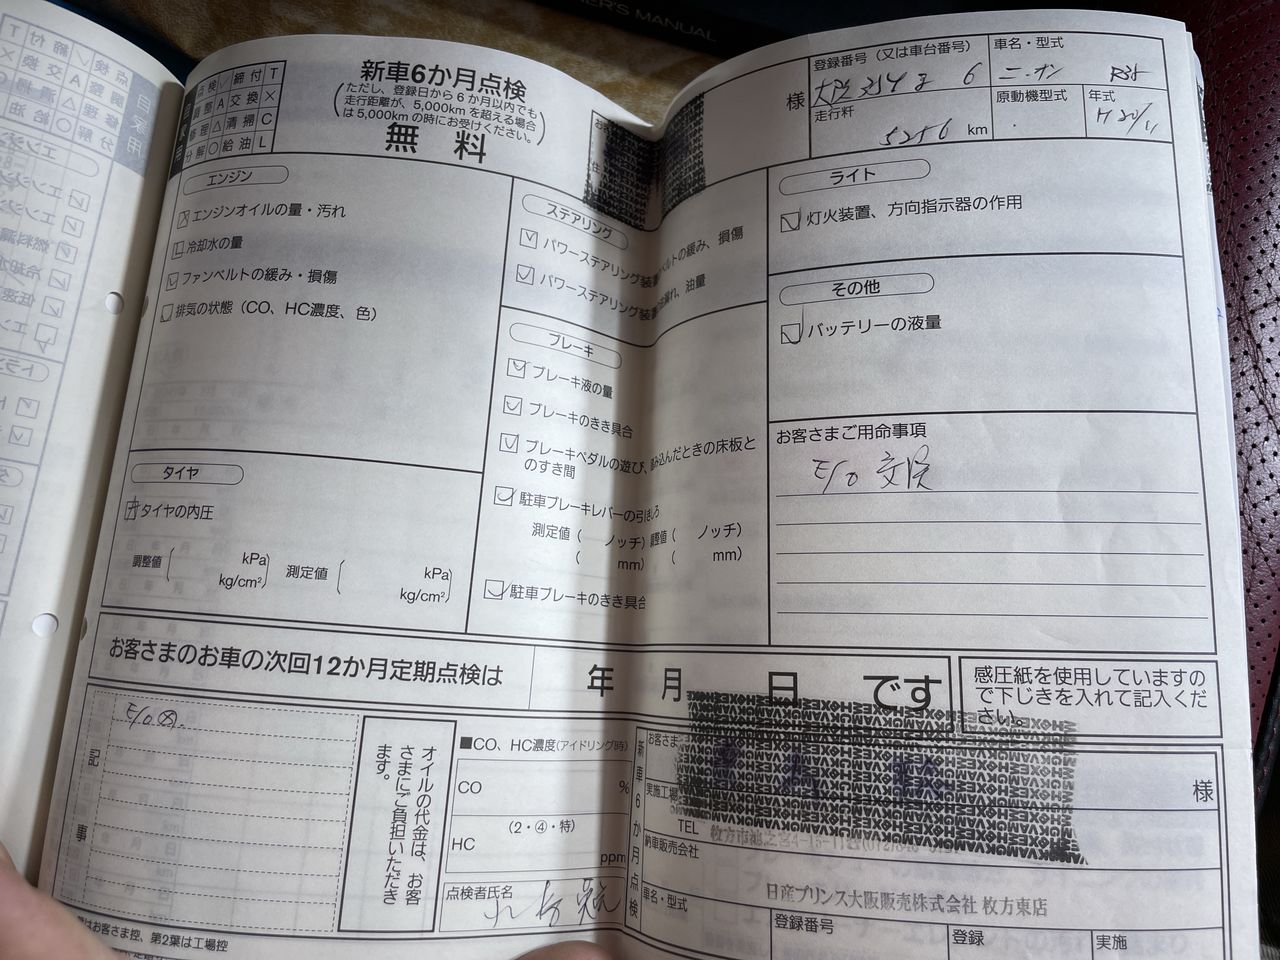 ER'S MANUAL
点検 ✓ 締付 T
調整 A 交換 ×
修理 △ 清掃 C
分解 ○ 給油 L
新車6か月点検
(ただし、登録日から6か月以内でも
走行距離が、5,000kmを超える場合
は5,000kmの時にお受けください。)
無料
様
登録番号(又は車台番号)
車名・型式
ニッサン R35
走行粁
5256 km
原動機型式
年式
H20/11
エンジン
エンジンオイルの量・汚れ
冷却水の量
ファンベルトの緩み・損傷
排気の状態(CO、HC濃度、色)
タイヤ
タイヤの内圧
調整値( kPa) 測定値( kPa)
kg/cm²) kg/cm²)
ステアリング
パワーステアリング装置のベルトの緩み、損傷
パワーステアリング装置の油漏れ、油量
ブレーキ
ブレーキ液の量
ブレーキのきき具合
ブレーキペダルの遊び、踏み込んだときの床板と
のすき間
駐車ブレーキレバーの引きしろ
測定値( ノッチ) 調整値( ノッチ)
( mm) ( mm)
駐車ブレーキのきき具合
ライト
灯火装置、方向指示器の作用
その他
バッテリーの液量
お客さまご用命事項
E/O 交換
お客さまのお車の次回12か月定期点検は 年 月 日 です
感圧紙を使用していますの
で下じきを入れて記入くだ
さい。
記事
E/O ⊗.
オイルの代金は、お客
さまにご負担いただき
ます。
■CO、HC濃度(アイドリング時)
CO %
(2・④・特)
HC ppm
点検者氏名
新車6か月点検
お客さま
様
実施工場
TEL
納車販売会社
日産プリンス大阪販売株式会社 枚方東店
車名・型式
登録番号
登録
実施
はお客さま控、第2葉は工場控